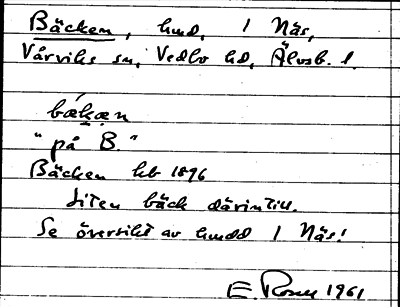 Bäcken, hmd, 1 Näs,
Vårviks sn, Vedbo hd, Älvsb. l.
bækæn
"på B."
Bäcken kb 1896
Liten bäck därintill.
Se översikt av hmdd 1 Näs!
E. 1961